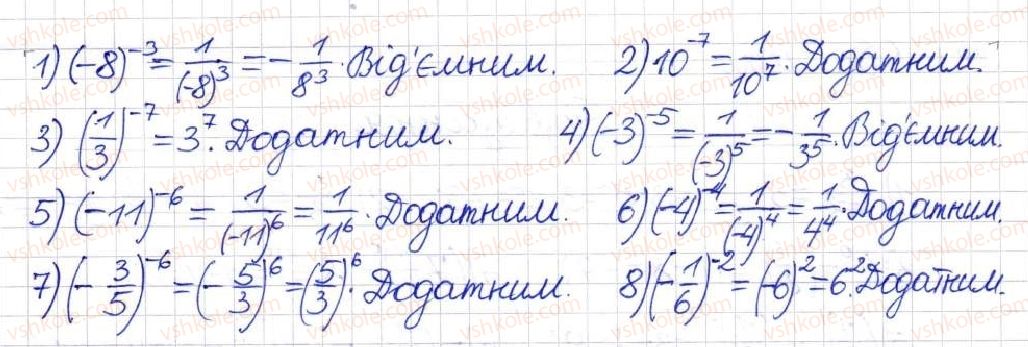 1) (-8)^-3 = 1/(-8)^3 = - 1/8^3. Від'ємним. 2) 10^-7 = 1/10^7. Додатним.
3) (1/3)^-7 = 3^7. Додатним. 4) (-3)^-5 = 1/(-3)^5 = - 1/3^5. Від'ємним.
5) (-11)^-6 = 1/(-11)^6 = 1/11^6. Додатним. 6) (-4)^-4 = 1/(-4)^4 = 1/4^4. Додатним.
7) (- 3/5)^-6 = (- 5/3)^6 = (5/3)^6. Додатним. 8) (- 1/6)^-2 = (-6)^2 = 6^2. Додатним.